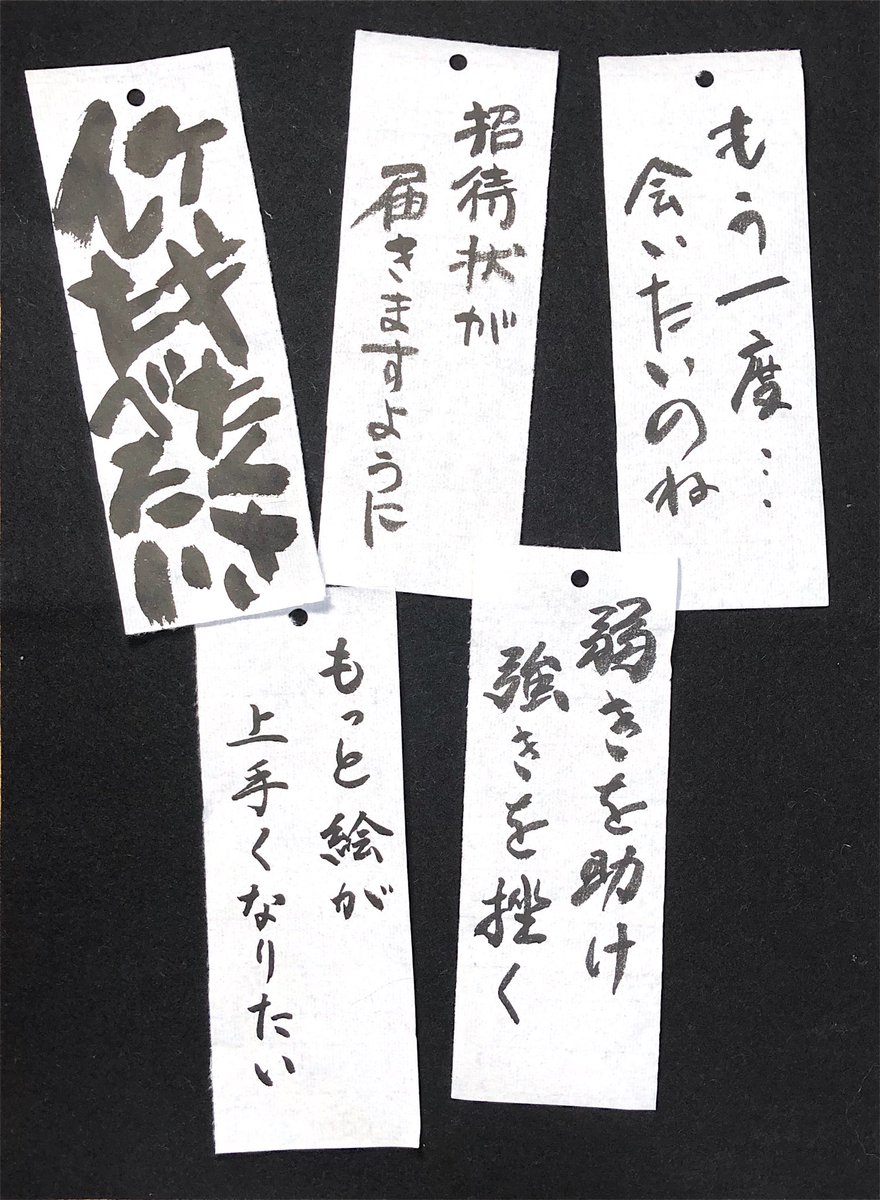 たくさ
べたい
招待状が
届きますように
もう一度…
会いたいのね
もっと絵が
上手くなりたい
弱きを助け
強きを挫く